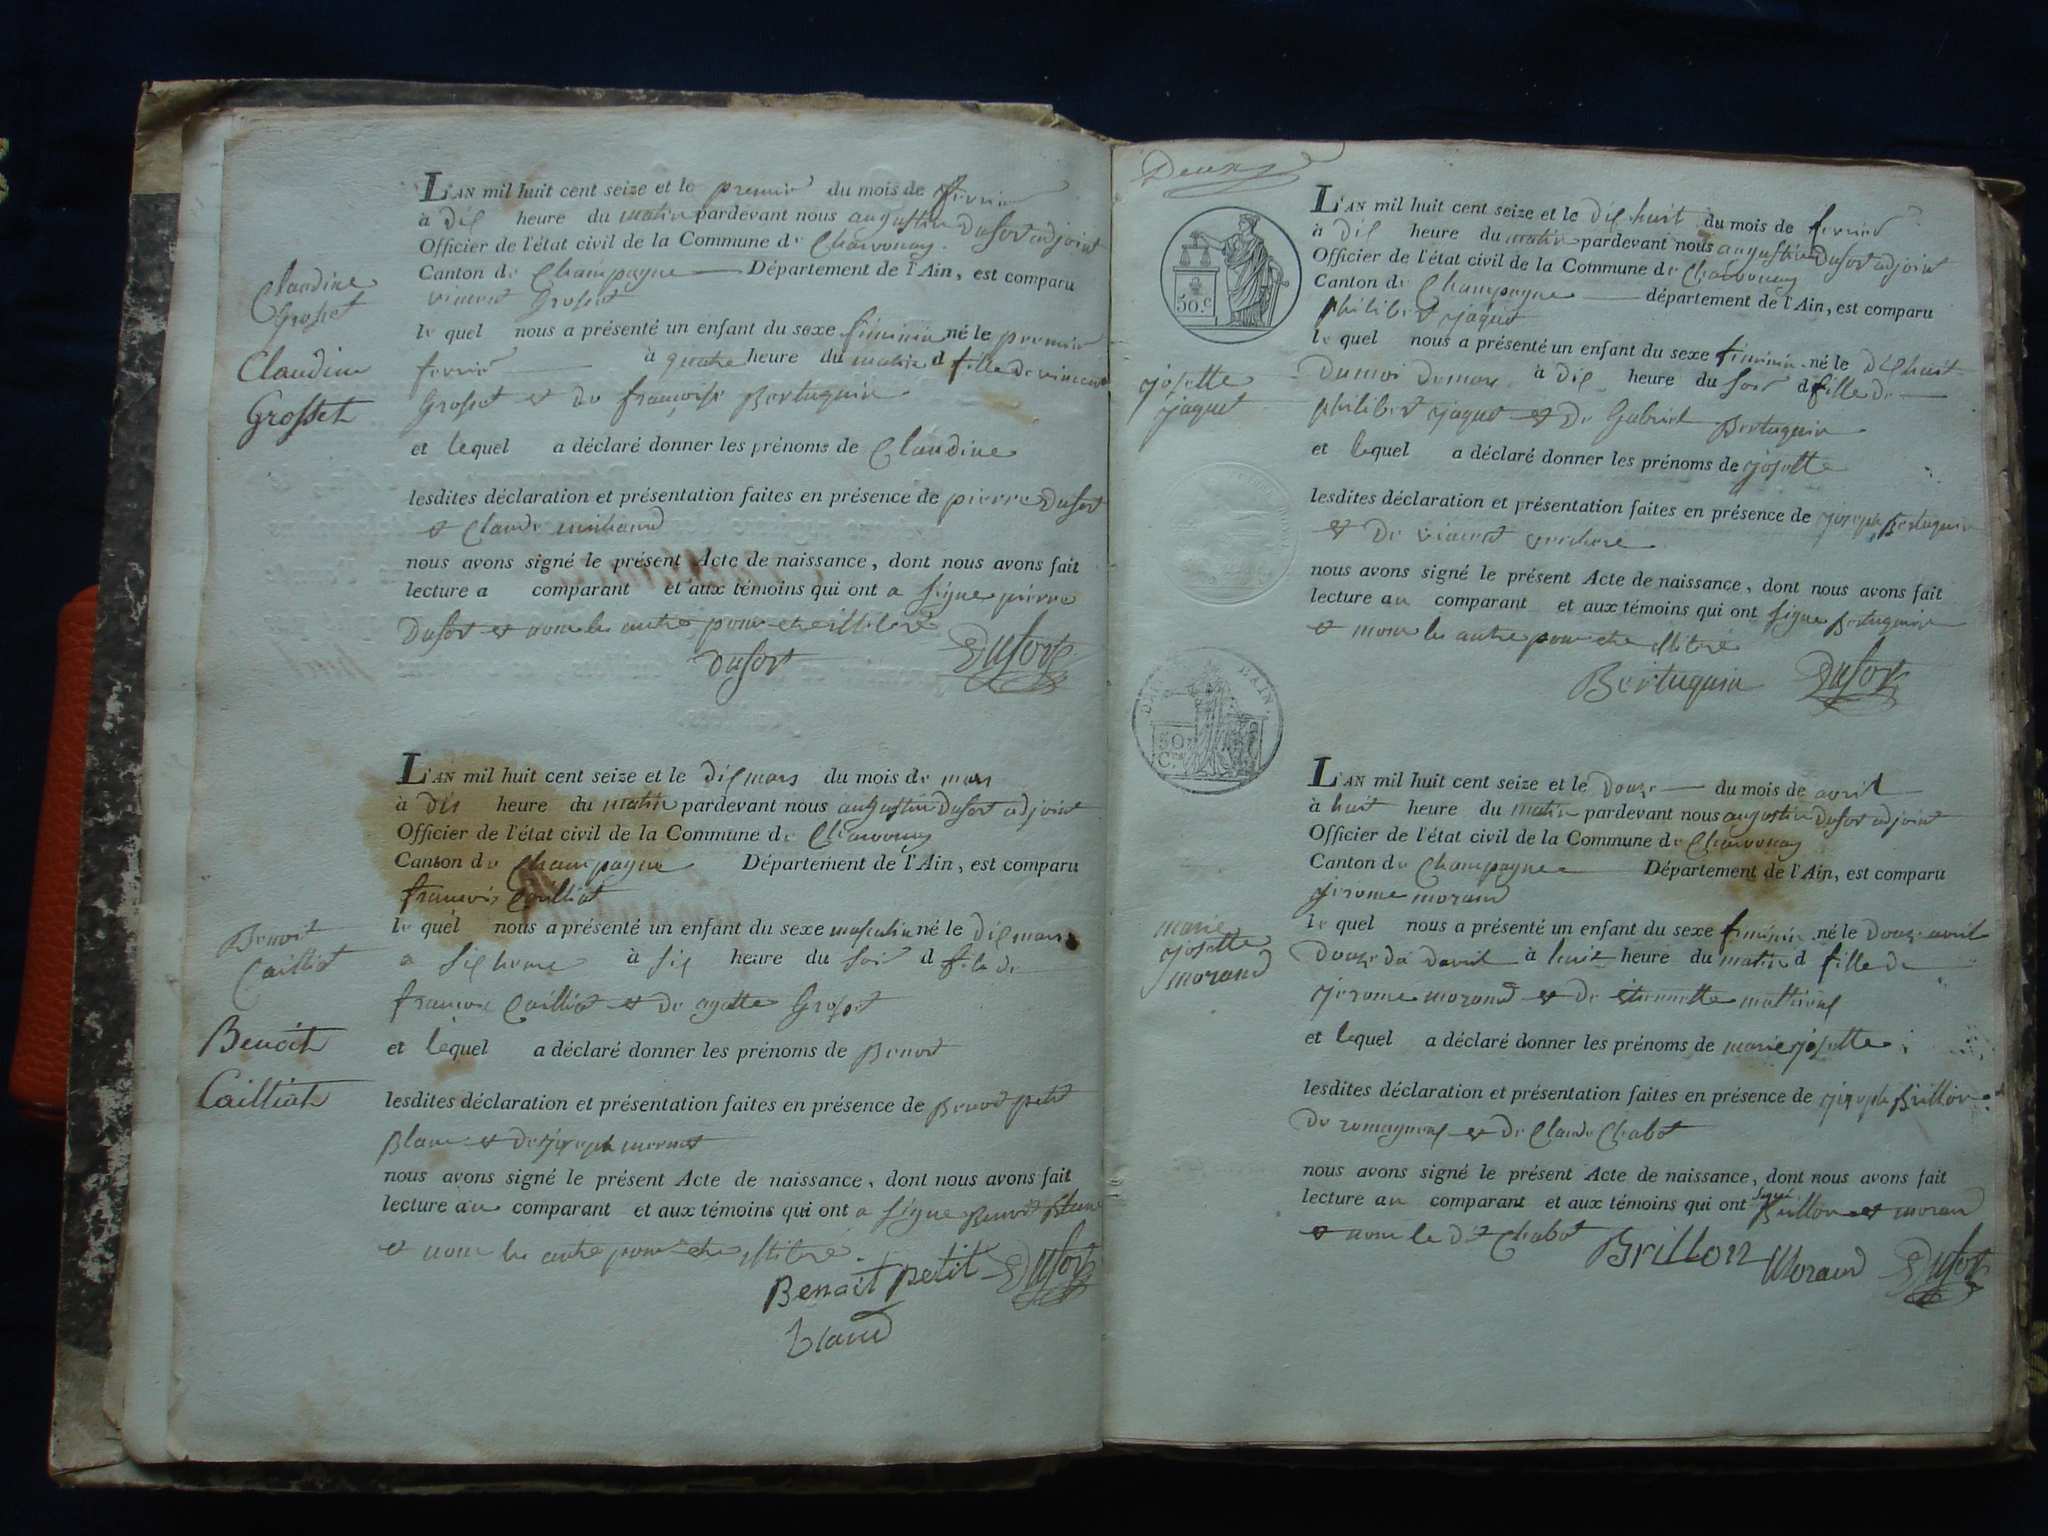 L'AN mil huit cent seize et le premier du mois de fevrier
à dix heure du matin pardevant nous augustin Dufort adjoint
Officier de l'état civil de la Commune de Charvonay
Canton de Champagne Département de l'Ain, est comparu
vincent Grosset
le quel nous a présenté un enfant du sexe féminin né le premier
fevrier à quatre heure du matin d fille de vincent
Grosset et de françoise Bertuquin
et lequel a déclaré donner les prénoms de Claudine
lesdites déclaration et présentation faites en présence de pierre Dufort
et Claude
nous avons signé le présent Acte de naissance, dont nous avons fait
lecture a comparant et aux témoins qui ont a signe pierre
Dufort et nom les autre pour etre illiteré
Dufort Dufort
Claudine
Grosset
Claudine
Grosset
L'AN mil huit cent seize et le dix mars du mois de mars
à dix heure du matin pardevant nous augustin Dufort adjoint
Officier de l'état civil de la Commune de Charvonay
Canton de Champagne Département de l'Ain, est comparu
francois Cailliat
le quel nous a présenté un enfant du sexe masculin né le dix mars
a six heure à six heure du soir d fils de
francois Cailliat et de agatte Grosset
et lequel a déclaré donner les prénoms de Benoit
lesdites déclaration et présentation faites en présence de Benoit petit
Blanc et de joseph
nous avons signé le présent Acte de naissance, dont nous avons fait
lecture au comparant et aux témoins qui ont a signe Benoit Blanc
et nom les autre pour etre illiteré.
Benoit petit Dufort
blanc
Benoit
Cailliat
Benoit
Cailliat
Deux
50.c
L'AN mil huit cent seize et le dix huit du mois de fevrier
à dix heure du matin pardevant nous augustin Dufort adjoint
Officier de l'état civil de la Commune de Charvonay
Canton de Champagne département de l'Ain, est comparu
philibert jaquet
le quel nous a présenté un enfant du sexe féminin né le dix huit
du moi de mars à dix heure du soir d fille de
philibert jaquet et de Gabriel Bertuquin
et lequel a déclaré donner les prénoms de josette
lesdites déclaration et présentation faites en présence de joseph Bertuquin
et de vincent
nous avons signé le présent Acte de naissance, dont nous avons fait
lecture au comparant et aux témoins qui ont signe Bertuquin
et nom les autre pour etre illiteré
Bertuquin Dufort
josette
jaquet
L'AIN.
50
C.
L'AN mil huit cent seize et le douze du mois de avril
à huit heure du matin pardevant nous augustin Dufort adjoint
Officier de l'état civil de la Commune de Charvonay
Canton de Champagne Département de l'Ain, est comparu
jerome morand
le quel nous a présenté un enfant du sexe féminin né le douze avril
douze da davril à huit heure du matin d fille de
jerome morand et de etiennette mathieux
et lequel a déclaré donner les prénoms de marie josette
lesdites déclaration et présentation faites en présence de joseph Brillon
de romagneux et de Claude Chabot
nous avons signé le présent Acte de naissance, dont nous avons fait
lecture au comparant et aux témoins qui ont signé Brillon et moran
et nom le dit Chabot
Brillon Morand Dufort
marie
josette
morand